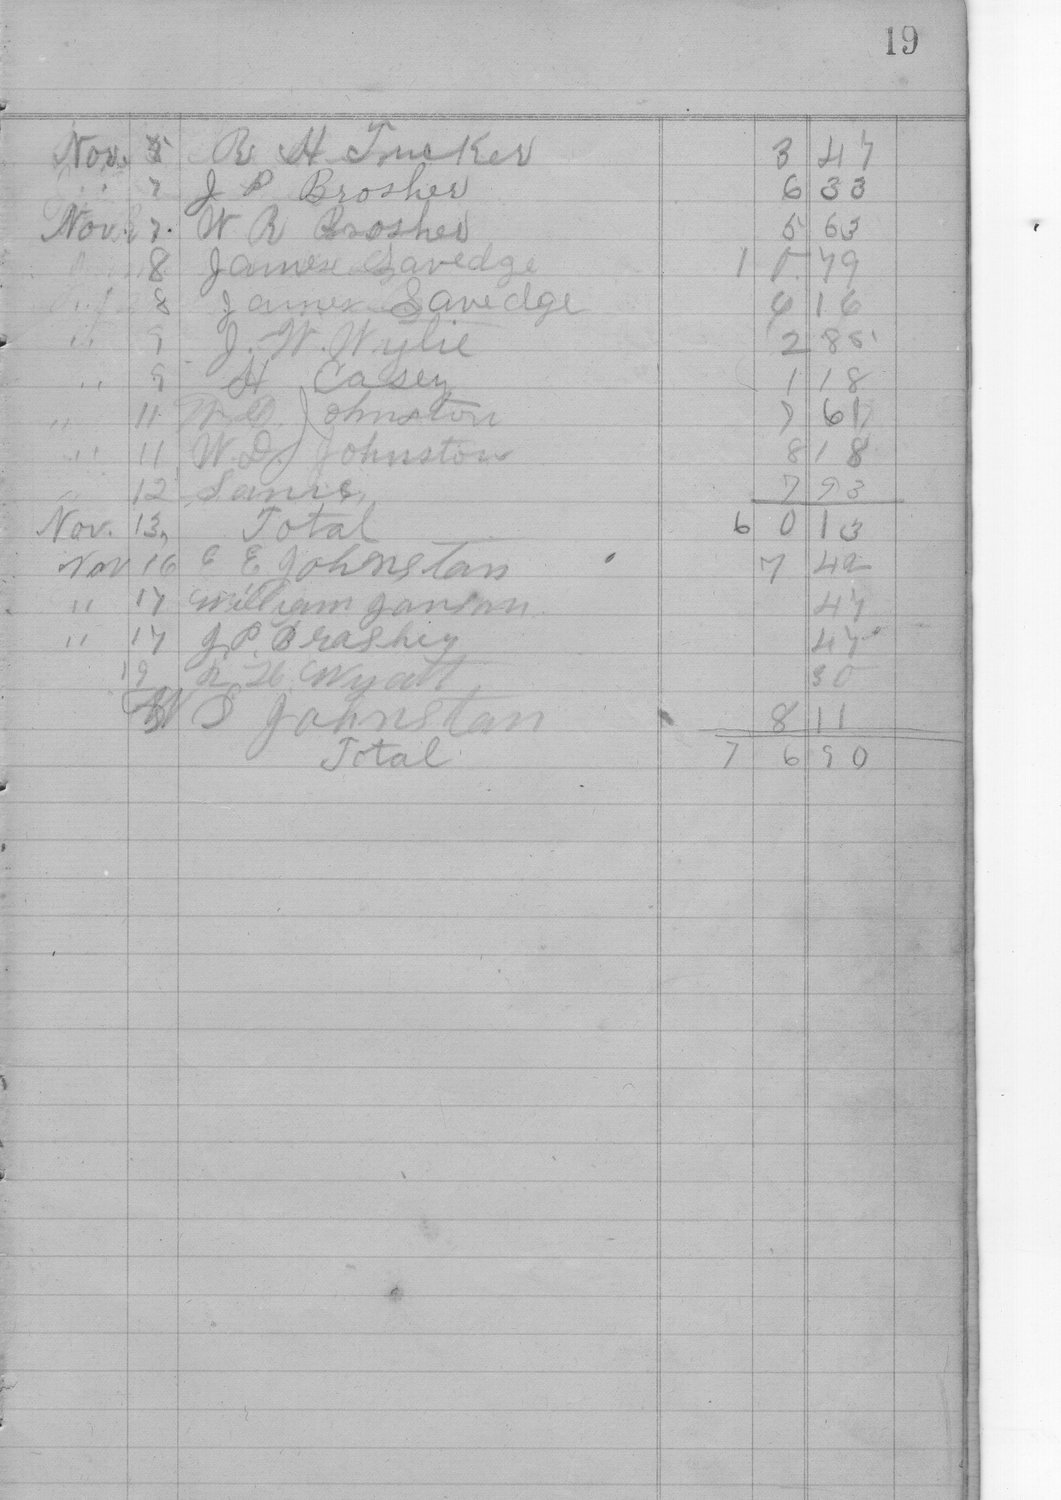 19
Nov. 5 R H Tucker 3 47
" 7 J P Brosher 6 33
Nov. 7. W R Brosher 5 63
8 James Savedge 1 0 79
" 8 James Savedge 6 16
" 9 J. W. Wylie 2 85
" 9 H Casey 1 18
" 11 W. D. Johnston 7 61
" 11 W. D. Johnston 8 18
" 12 Same, 7 93
Nov. 13, Total 6 0 13
Nov 16 C E Johnstan 7 42
" 17 William Janson 47
" 17 J. P. Brashey 47
19 R. H. Wyatt 30
W S Johnstan 8 11
Total 7 6 90